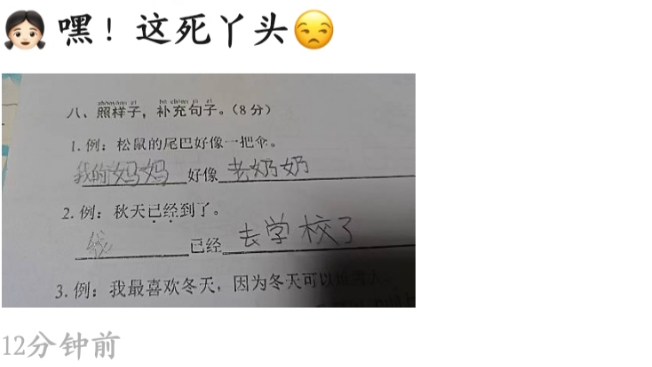 嘿！这死丫头
八、照样子，补充句子。（8分）
1. 例：松鼠的尾巴好像一把伞。
我的妈妈好像老奶奶
2. 例：秋天已经到了。
我已经去学校了
3. 例：我最喜欢冬天，因为冬天可以
12分钟前